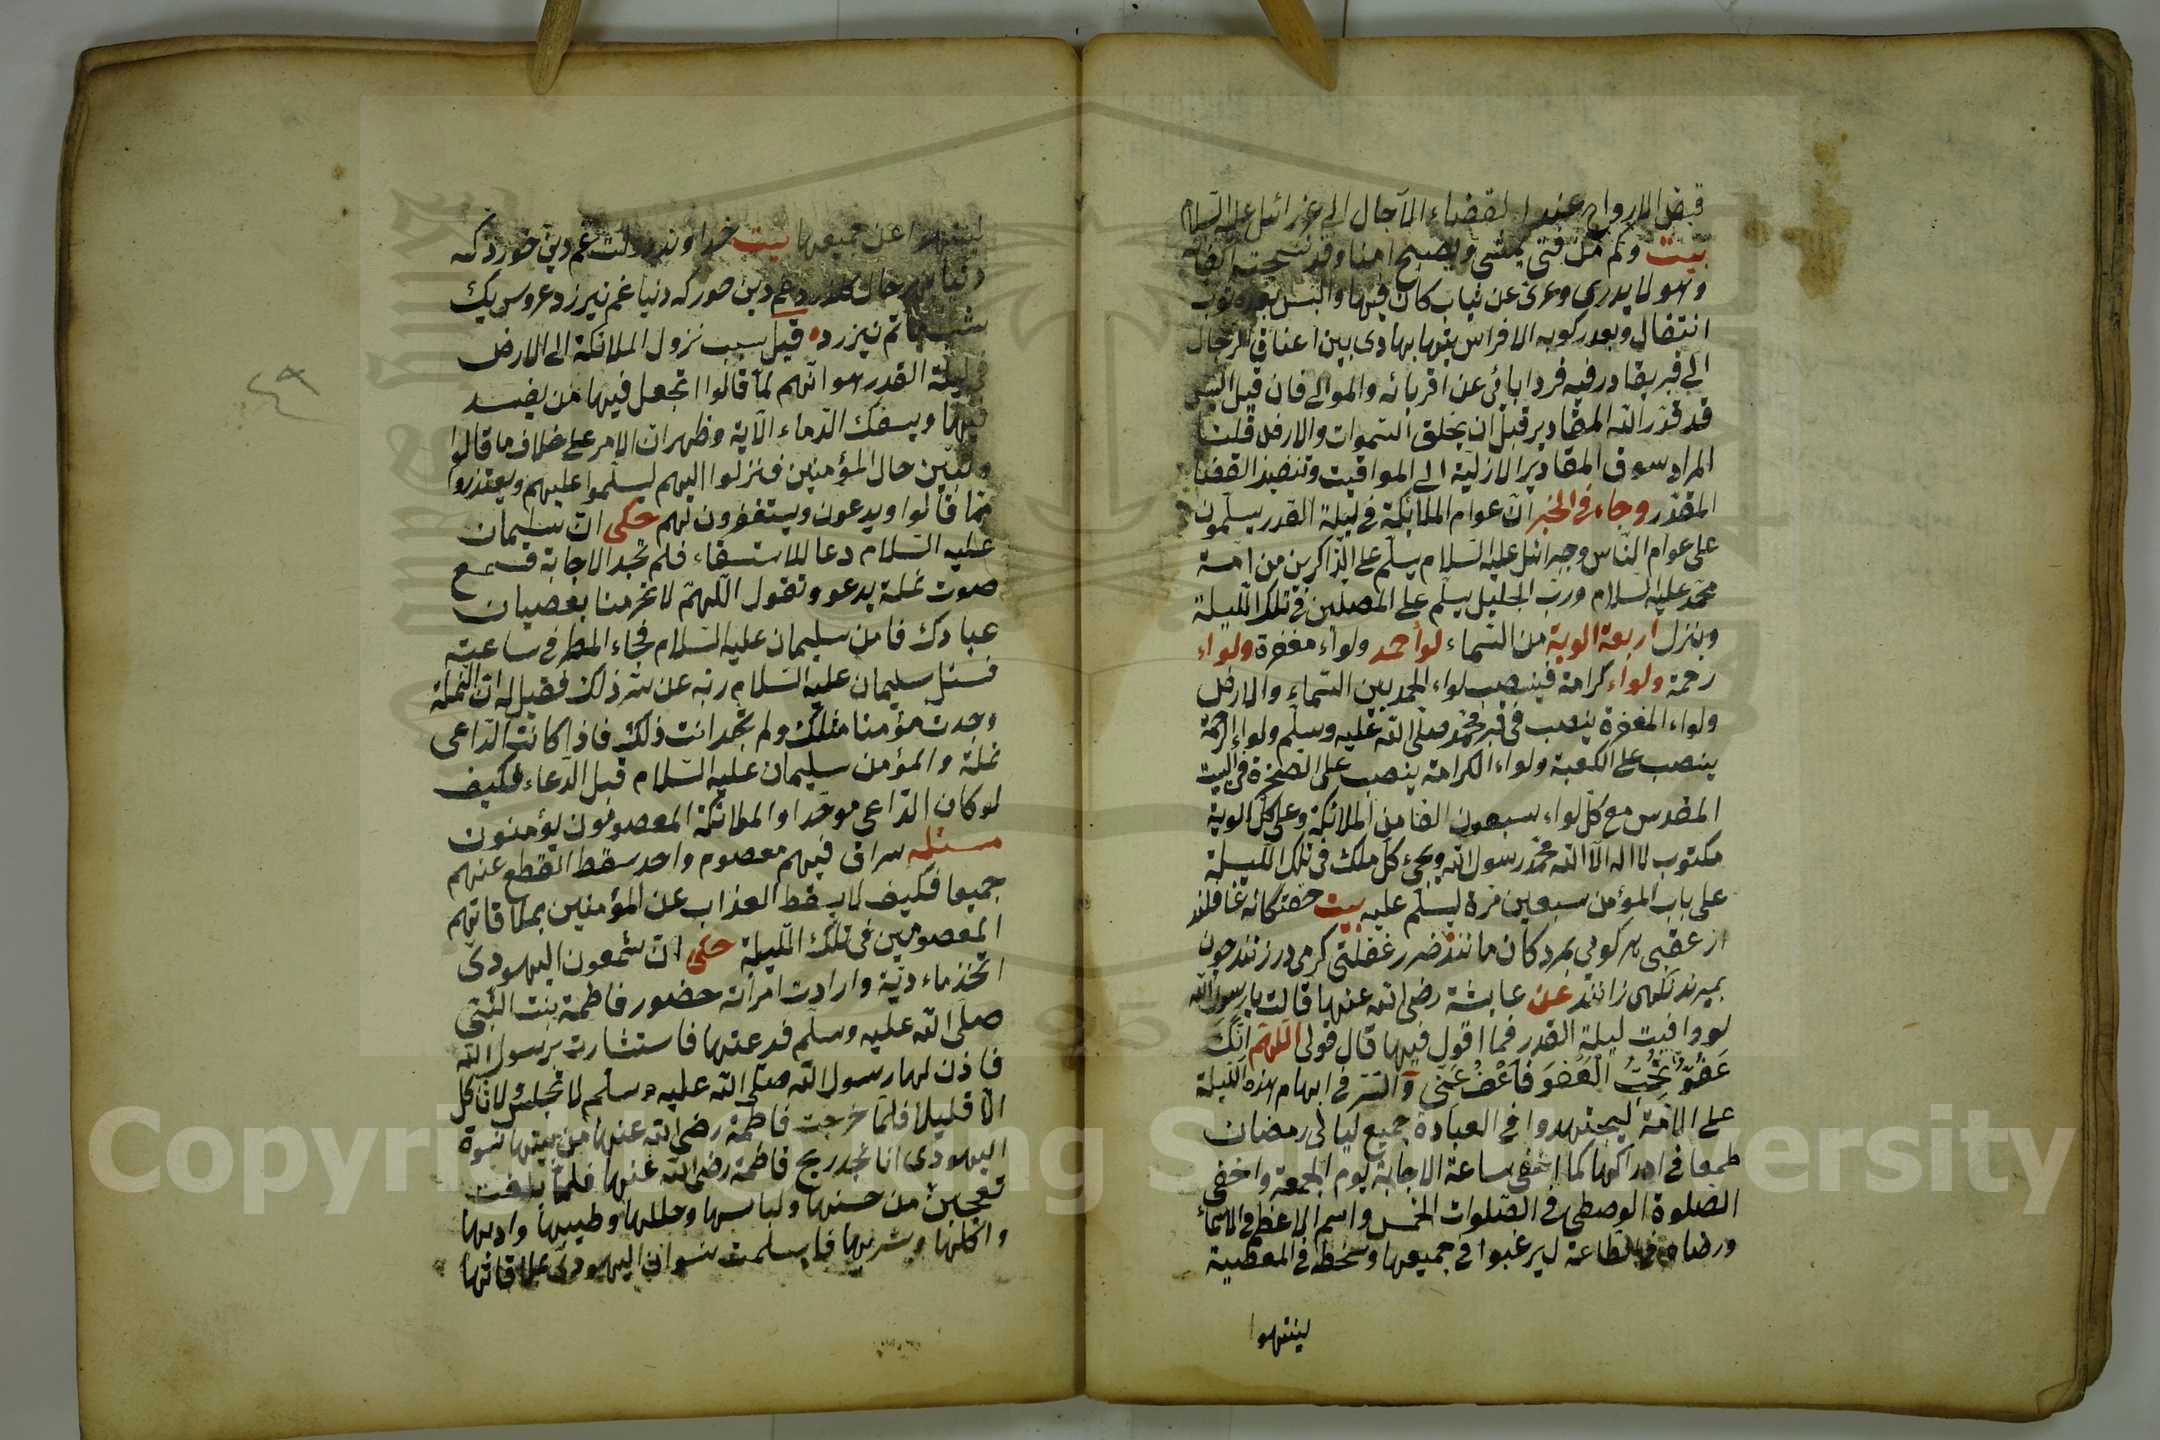 قبض الارواح عند انقضاء الآجال الى عزرائيل عليه السلام
بيت وكم من فتى يمشي ويصبح آمنا وقد نسجت
وهو لا يدري وعرى عن ثياب كان فيها والبس بعد ثوب
انتضال وبعد ركوبه الافراس تيها يهادى بين اعناق الرجال
الى قبر يغادر فيه فردا باى عن اقربائه والموالى فان قيل اليس
قد قدّر الله المقادير قبل ان يخلق السموات والارض قلت
المراد سوق المقادير الازلية الى المواقيت وتنفيذ القضاء
المقدّر وجاء في الخبر انّ عوام الملائكة في ليلة القدر يسلّمون
على عوام الناس وجبرائيل عليه السلام يسلّم على الذاكرين من امة
محمد عليه السلام وربّ الجليل يسلّم على المصلّين في تلك اللّيلة
وينزل اربعة الوية من السماء لواء حمد ولواء مغفرة ولواء
رحمة ولواء كرامة فينصب لواء الحمد بين السماء والارض
ولواء المغفرة ينصب في قبر محمد صلّى الله عليه وسلّم ولواء الرحمة
ينصب على الكعبة ولواء الكرامة ينصب على الصخرة في البيت
المقدس مع كلّ لواء سبعون الفا من الملائكة وعلى كلّ الوية
مكتوب لا اله الّا الله محمد رسول الله ويجئ كلّ ملك في تلك اللّيلة
على باب المؤمن سبعين مرة ليسلّم عليه بيت خفتگانه غافلند
از عقبى هر كوبى مردكان مانند ضرر غفلتى كرمى درزنند چون
بميرند نكهى زانند عن عايشة رضى الله عنها قالت يا رسول الله
لو وافيت ليلة القدر فما اقول فيها قال قولى اللّهمّ انّك
عَفُوٌّ تُحِبُّ الْعَفْوَ فَاعْفُ عَنّى والسّر في ابهام هذه اللّيلة
على الامّة ليجتهدوا في العبادة جميع ليالى رمضان
طمعا في ادراكها كما اخفى ساعة الاجابة يوم الجمعة واخفى
الصلوة الوصطى في الصّلوات الخمس واسم الاعظم في الاسماء
ورضاه في الطاعة ليرغبوا في جميعها وسخطه في المعصية
ينتهوا
لينتهوا عن جميعها بيت خداوند دولت غم دين خورد كه
دنيا بهر حال غم دين خور كه دنيا غم نيرزد عروس يك
شب ماتم نيرزد قيل سبب نزول الملائكة الى الارض
ليلة القدر هو انّهم لمّا قالوا اتجعل فيها من يفسد
فيها ويسفك الدّماء الآية وظهر انّ الامر على خلاف ما قالوا
وتبيّن حال المؤمنين فنزلوا اليهم ليسلّموا عليهم ويعتذروا
ممّا قالوا ويدعون ويستغفرون لهم حكى انّ سليمان
عليه السّلام دعا للاستسقاء فلم تجد الاجابة فسمع
صوت نملة يدعو وتقول اللّهمّ لا تحرمنا بعصيان
عبادك فامن سليمان عليه السّلام فجاء المطر في ساعته
فسئل سليمان عليه السّلام ربّه عن سرّ ذلك فقيل له انّ النّملة
وجدت مؤمنا مثلك ولم تجد انت ذلك فاذا كانت الدّاعى
نملة والمؤمن سليمان عليه السّلام قبل الدّعاء فكيف
لو كان الدّاعى موحّدا والملائكة المعصومون يؤمنون
مسئلة سراق فيهم معصوم واحد سقط القطع عنهم
جميعا فكيف لا يسقط العذاب عن المؤمنين بملاقاتهم
المعصومين في تلك اللّيلة حكى انّ شمعون اليهودى
اتّخذ مادبة وارادت امرأته حضور فاطمة بنت النّبى
صلّى الله عليه وسلّم فدعتها فاستشارت برسول الله
فاذن لها رسول الله صلّى الله عليه وسلّم لا تجلسى لا تاكل
الّا قليلا فلمّا خرجت فاطمة رضى الله عنها من بيتها نسوة
اليهودى انا نجد ريح فاطمة رضى الله عنها فلمّا بلغت
تعجبن من حسنها ولباسها وحللها وطيبها وادبها
واكلها وشربها فاسلمت نسوان اليهودى بملاقاتها